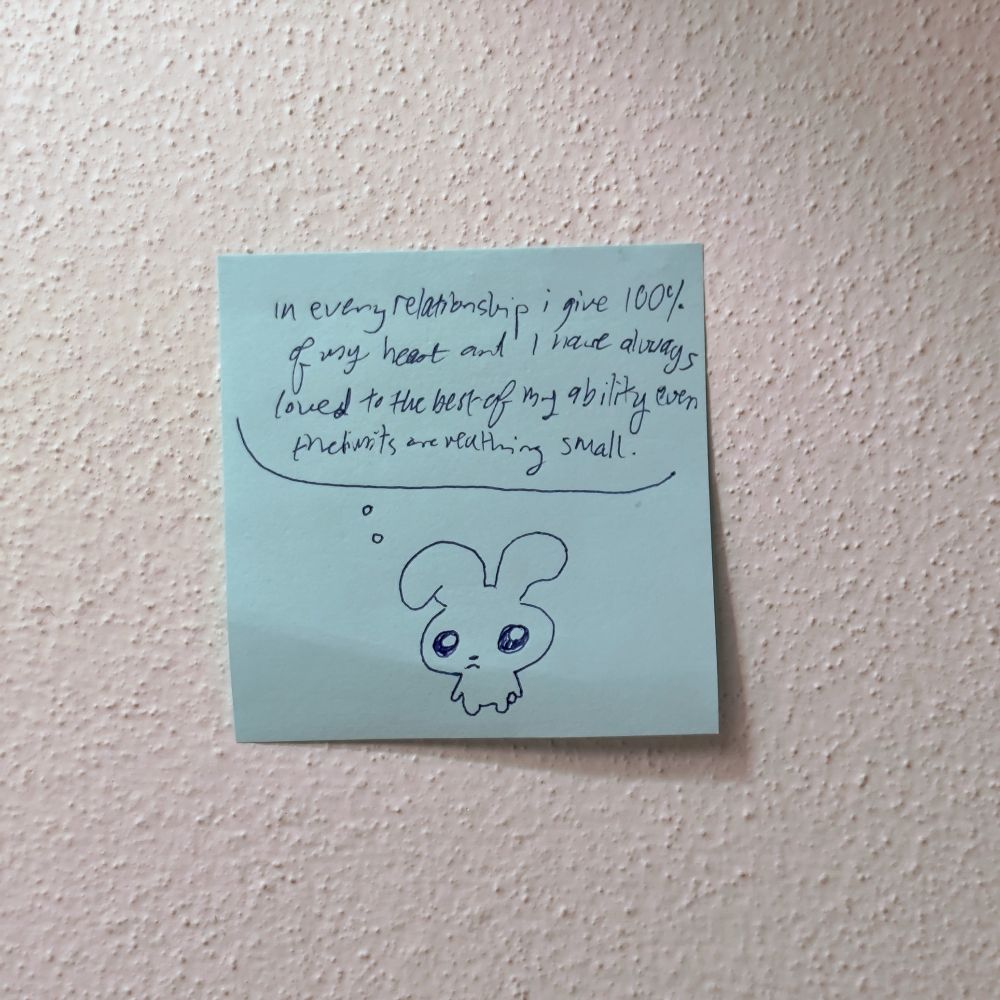 in every relationship i give 100%
of my heart and I have always
loved to the best of my ability even
small.